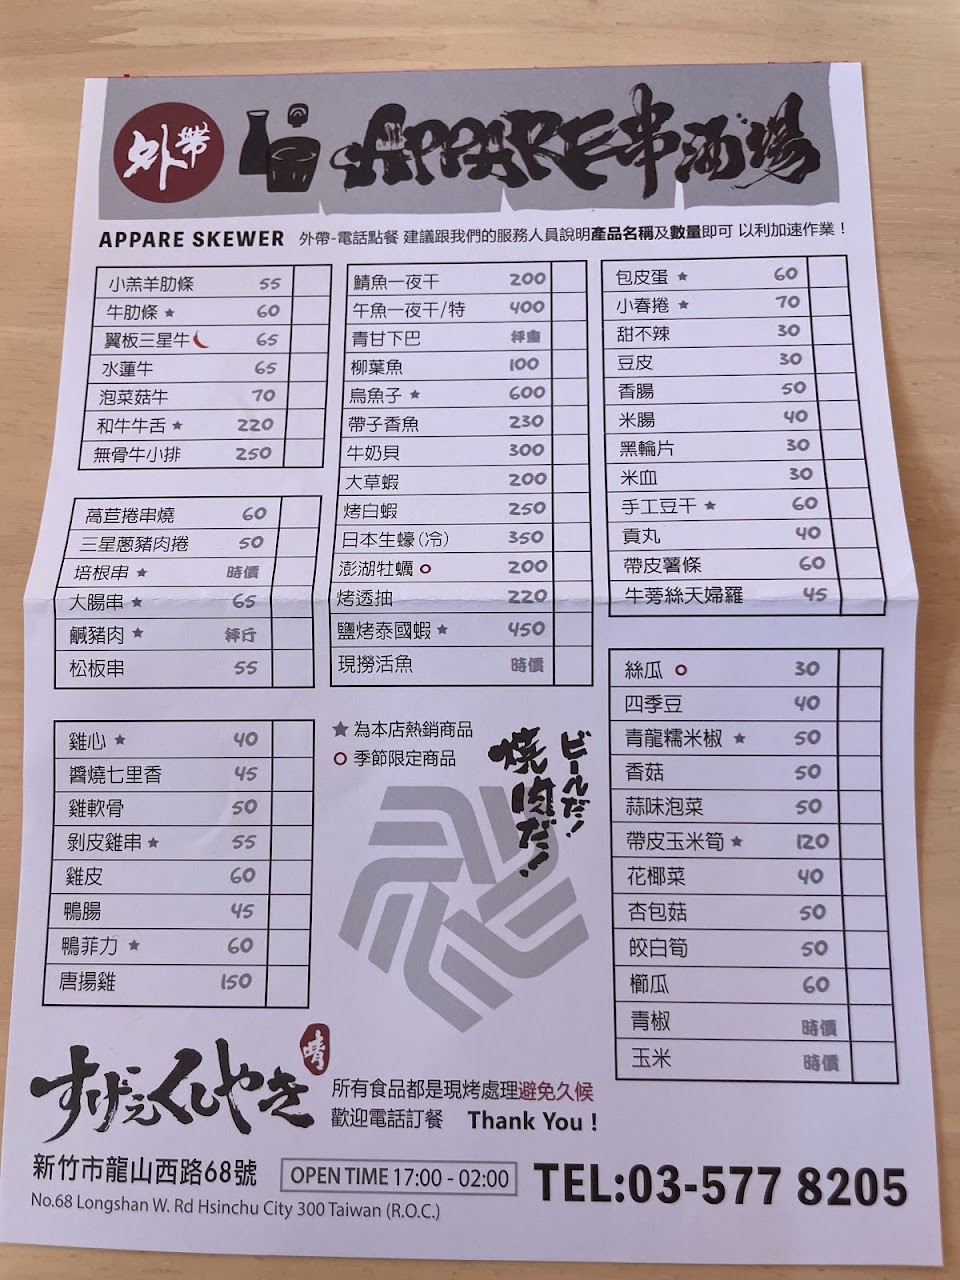 外帶 APPARE串酒場
APPARE SKEWER 外帶-電話點餐 建議跟我們的服務人員說明產品名稱及數量即可 以利加速作業！
小羔羊肋條 55
牛肋條★ 60
翼板三星牛 65
水蓮牛 65
泡菜菇牛 70
和牛牛舌★ 220
無骨牛小排 250
萵苣捲串燒 60
三星蔥豬肉捲 50
培根串★ 時價
大腸串★ 65
鹹豬肉★ 秤斤
松板串 55
雞心★ 40
醬燒七里香 45
雞軟骨 50
剝皮雞串★ 55
雞皮 60
鴨腸 45
鴨菲力★ 60
唐揚雞 150
鯖魚一夜干 200
午魚一夜干/特 400
青甘下巴 秤重
柳葉魚 100
烏魚子★ 600
帶子香魚 230
牛奶貝 300
大草蝦 200
烤白蝦 250
日本生蠔(冷) 350
澎湖牡蠣○ 200
烤透抽 220
鹽烤泰國蝦★ 450
現撈活魚 時價
★為本店熱銷商品
○季節限定商品
ビールだ！
焼肉だ！
包皮蛋★ 60
小春捲★ 70
甜不辣 30
豆皮 30
香腸 50
米腸 40
黑輪片 30
米血 30
手工豆干★ 60
貢丸 40
帶皮薯條 60
牛蒡絲天婦羅 45
絲瓜○ 30
四季豆 40
青龍糯米椒★ 50
香菇 50
蒜味泡菜 50
帶皮玉米筍★ 120
花椰菜 40
杏包菇 50
皎白筍 50
櫛瓜 60
青椒 時價
玉米 時價
すげえくしやき
所有食品都是現烤處理避免久候
歡迎電話訂餐 Thank You！
新竹市龍山西路68號 OPEN TIME 17:00 - 02:00 TEL:03-577 8205
No.68 Longshan W. Rd Hsinchu City 300 Taiwan (R.O.C.)